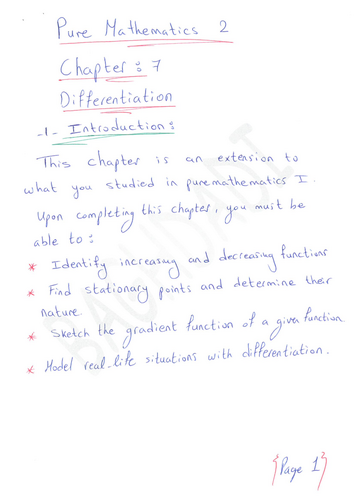 Pure Mathematics 2
Chapter : 7
Differentiation
-1- Introduction :
This chapter is an extension to
what you studied in puremathematics I.
Upon completing this chapter, you must be
able to :
* Identify increasing and decreasing functions
* Find stationary points and determine their
nature.
* Sketch the gradient function of a given function.
* Model real-life situations with differentiation.
Page 1